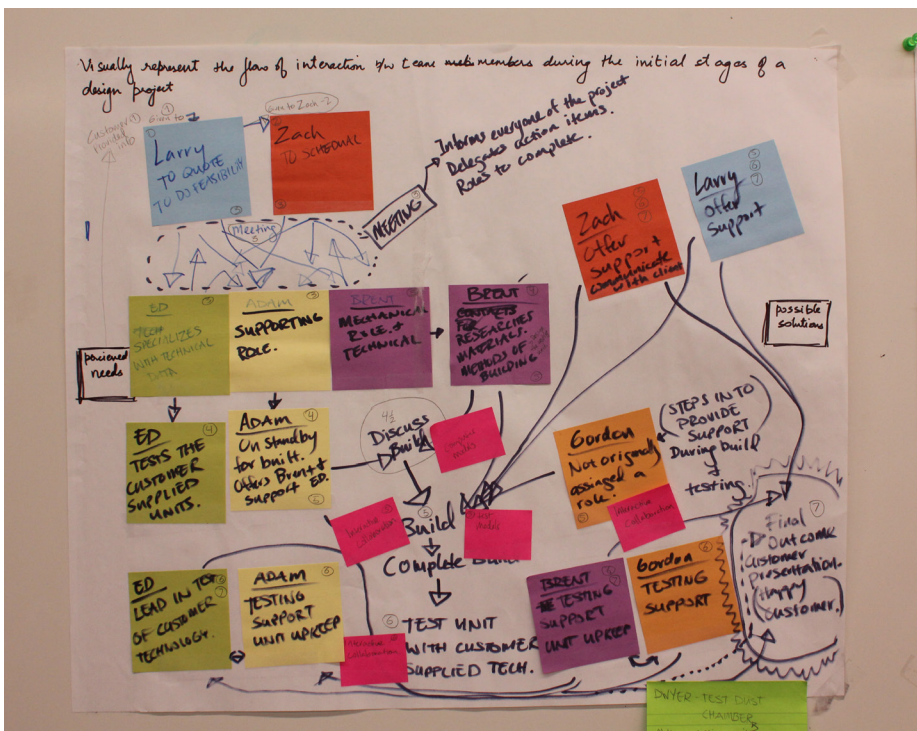 Visually represent the flow of interaction b/w team members during the initial stages of a
design project
Customer
Provides
info
Given to
Given to Zach - 2
Larry
TO QUOTE
TO DO FEASIBILITY
Zach
TO SCHEDUAL
Informs everyone of the project
Delegates action items.
Roles to complete.
MEETING
Meeting
3
Zach
offer
support +
communicate
with client
Larry
offer
support
possible
solutions
percieved
needs
ED
TECH
SPECIALIZES
WITH TECHNICAL
DATA
ADAM
SUPPORTING
ROLE.
BRENT
MECHANICAL
ROLE. +
TECHNICAL
BRENT
CONTACTS
FOR
RESEARCHES
MATERIALS.
METHODS OF
BUILDING
ED
TESTS THE
CUSTOMER
SUPPLIED
UNITS.
4
ADAM
On Standby
for built.
Offers Brent &
support ED.
4
4½
Discuss
Build
Gordon
Not originally
assinged a
role.
STEPS IN TO
PROVIDE
SUPPORT
During build
testing.
Interactive
collaboration
Interactive
collaboration
Build
5
Complete Build
6
TEST UNIT
WITH CUSTOMER
SUPPLIED TECH.
ED
LEAD IN TEST
OF CUSTOMER
TECHNOLOGY.
ADAM
TESTING
SUPPORT
UNIT UPKEEP
Interactive
collaboration
BRENT
TESTING
SUPPORT
UNIT UPKEEP
Gordon
TESTING
SUPPORT
7
Final
Outcome
Customer
presentation.
(Happy
Customer.)
DWYER - TEST DUST
CHAMBER